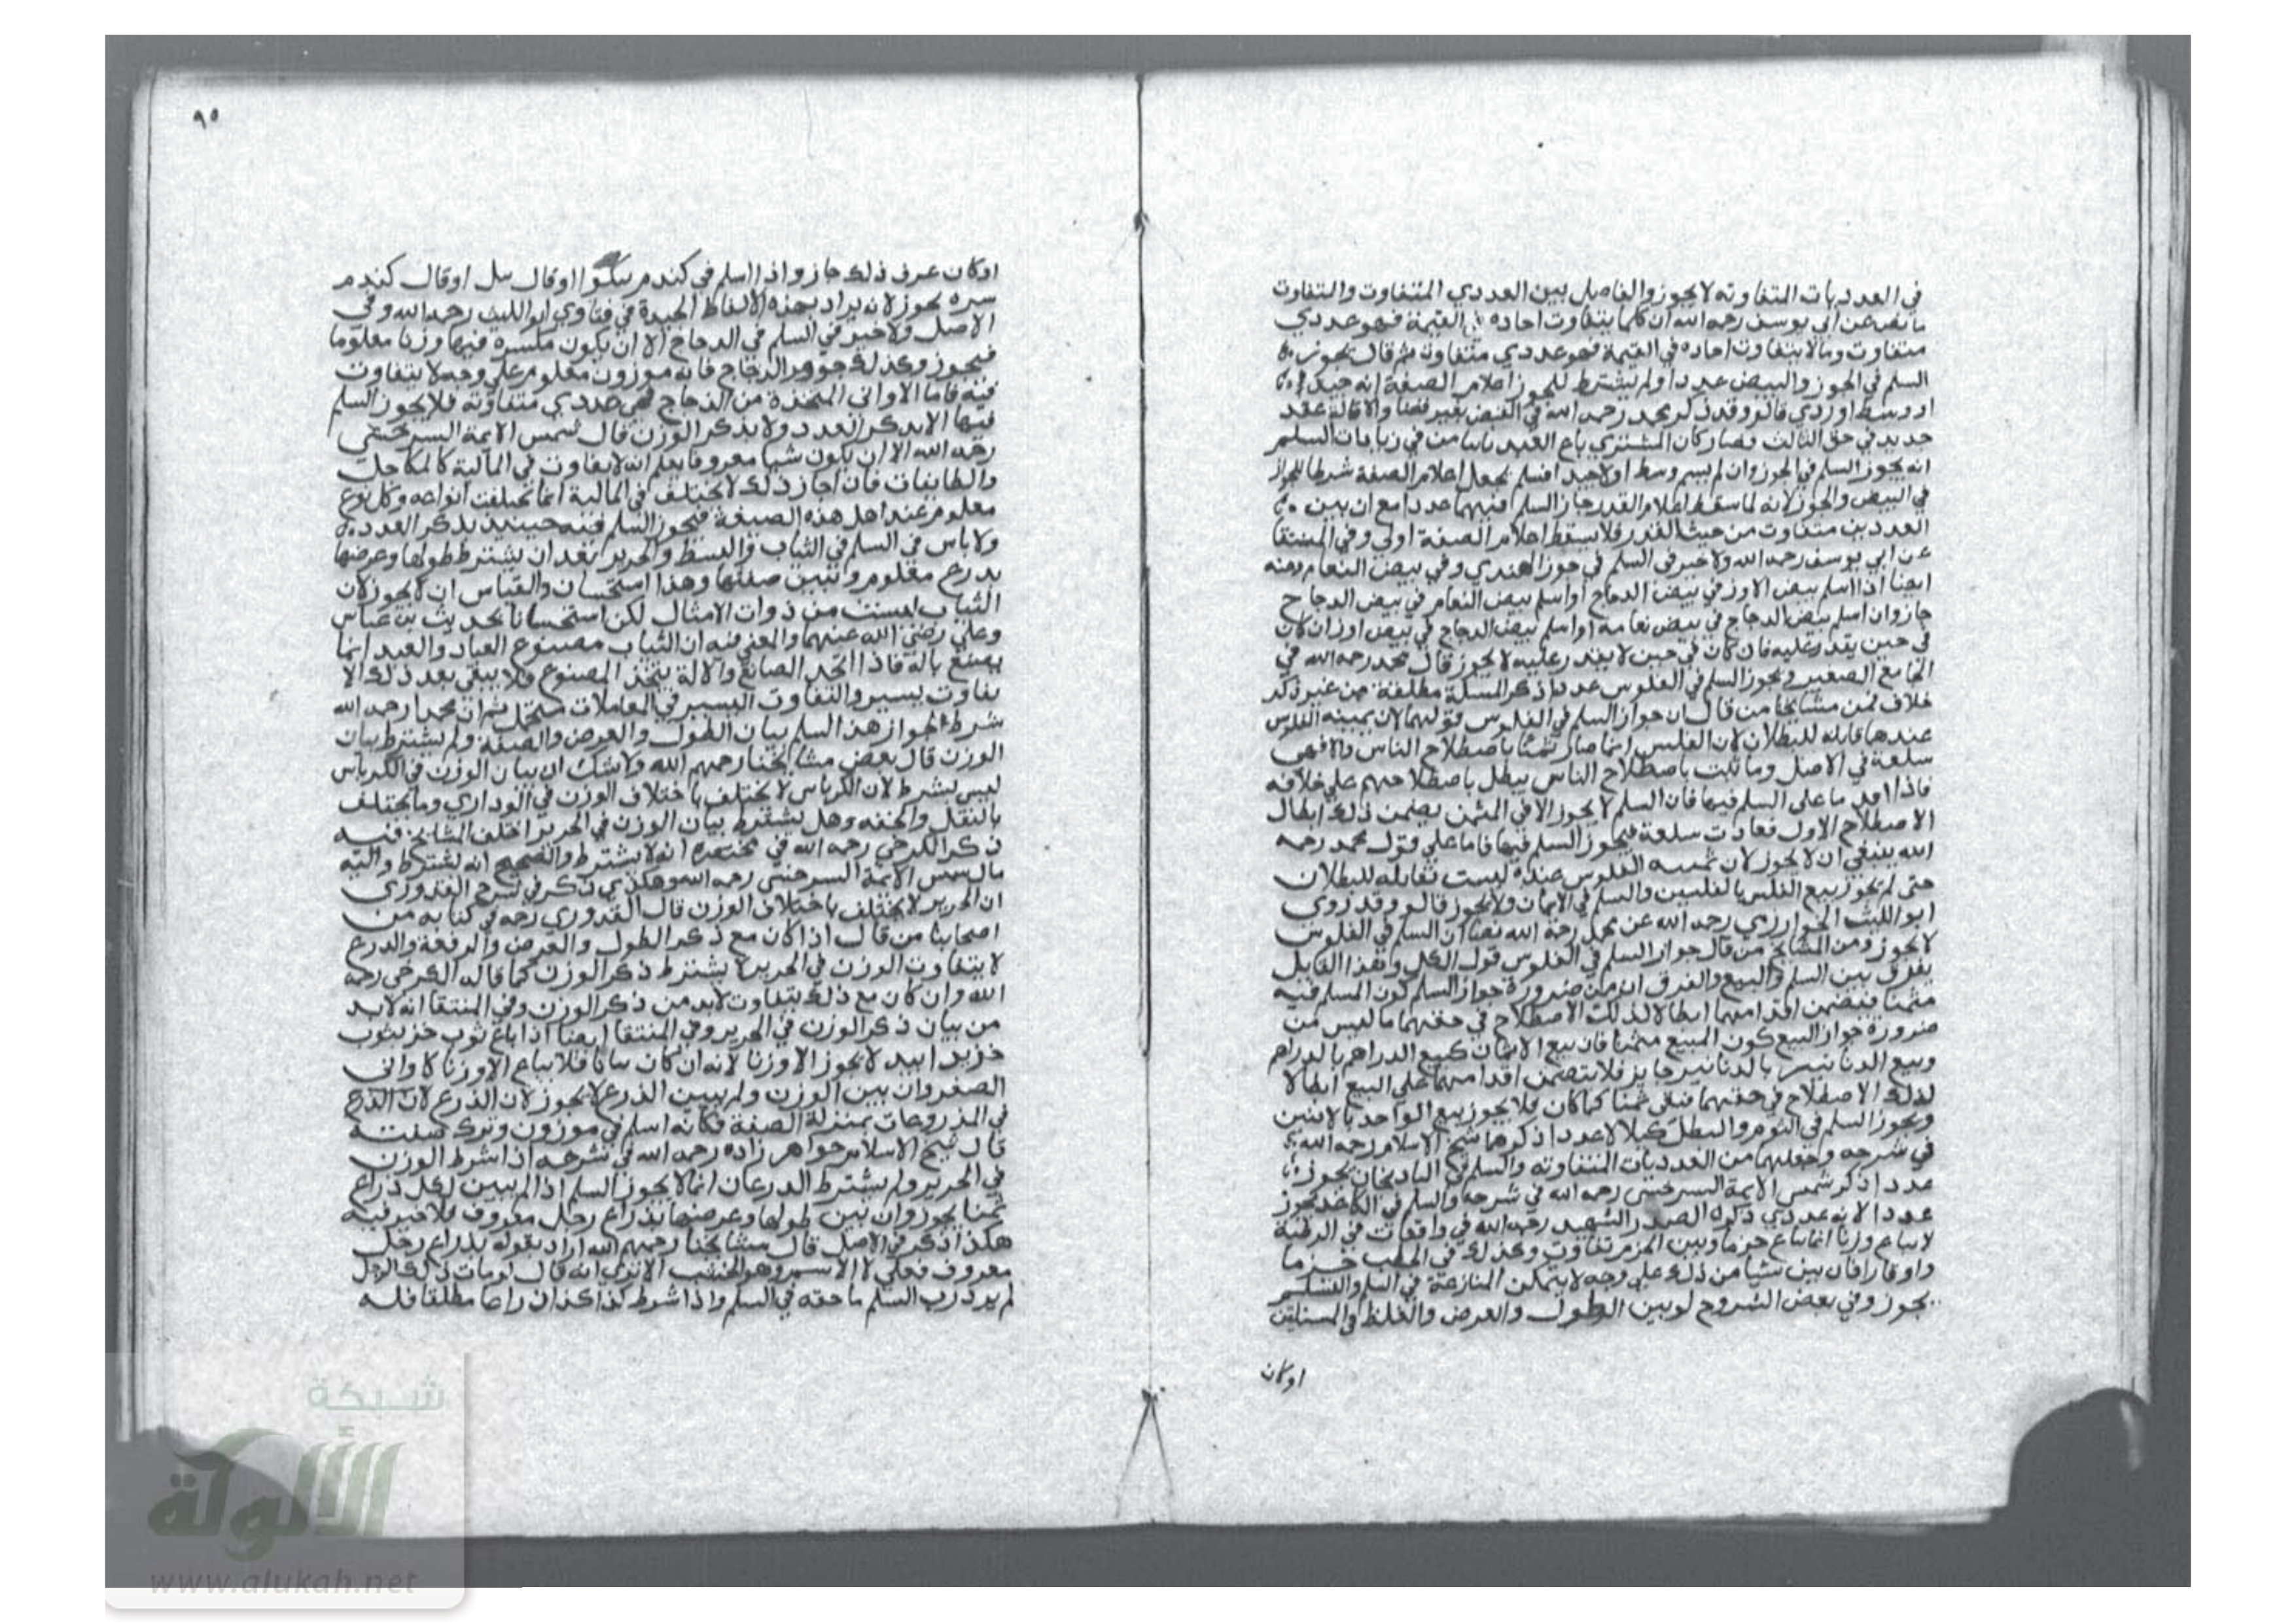 في العدديات المتفاوته لا يجوز والفاصل بين العددي المتفاوت والتفاوت
ما نص عن ابي يوسف رحمه الله ان كلما يتفاوت احاده في القيمة فهو عددي
متفاوت ومالا يتفاوت احاده في القيمة فهو عددي متفاوت ثم قال يجوز
السلم في الجوز والبيض عددا ولم يشترط للجوز اعلام الصفة انه جيد
او وسط او ردي قالو وقد ذكر محمد رحمه الله في القبض بغير قضا والاقالة عقد
جديد في حق الثالث فصار كان المشتري باع العبد ثانيا من في زيادات السلم
انه يجوز السلم في الجوز وان لم يسم وسط او لا جيدا فسلم يجعل اعلام الصفة شرطا للجواز
في البيض والجوز لانه لما سقط اعلام القدر جاز السلم فيهما عددا مع ان بين
العددين متفاوت من حيث القدر فلا يسقط اعلام الصفة اولي وفي المنتقا
عن ابي يوسف رحمه الله ولا خير في السلم في جوز الهندي وفي بيض النعام وعنه
ايضا اذا اسلم بيض الاوز في بيض الدجاج او اسلم بيض النعام في بيض الدجاج
جاز وان اسلم بيض الدجاج في بيض نعامه او اسلم بيض الدجاج في بيض اوز ان كان
في حين يقدر عليه فان كان في حين لا يقدر عليه لا يجوز قال محمد رحمه الله في
الجامع الصغير ويجوز السلم في الفلوس عددا ذكر المسلة مطلقة من غير ذكر
خلاف فمن مشايخنا من قال ان جواز السلم في الفلوس قولهما لان ثمنيه الفلوس
عندهما قابله للبطلان لان الفلس انما صار ثمنا باصطلاح الناس والا فهي
سلعة في الاصل وما ثبت باصطلاح الناس يبطل باصطلاحهم علي خلافه
فاذا اقدما على السلم فيها فان السلم لا يجوز الا في المثمن يضمن ذلك ابطال
الاصطلاح الاول فعادت سلعة فيجوز السلم فيها فاما علي قول محمد رحمه
الله ينبغي ان لا يجوز لان ثمنيه الفلوس عنده ليست بقابله للبطلان
حتى لم يجوز بيع الفلس بالفلسين والسلم في الاثمان ولا يجوز قالو وقد روي
ابو الليث الخوارزي رحمه الله عن محمد رحمه الله نصا ان السلم في الفلوس
لا يجوز ومن المشايخ من قال جواز السلم في الفلوس قول الكل وهذا القايل
يفرق بين السلم والبيع والفرق ان من ضرورة جواز السلم كون المسلم فيه
مثمنا فيضمن اقدامهما ابطالا لذلك الاصطلاح في حقهما ما ليس من
ضرورة جواز البيع كون المبيع مثمنا فان بيع الاثمان كبيع الدراهم بالدراهم
وبيع الدنانير بالدنانير جايز فلا يتضمن اقدامهما علي البيع ابطالا
لذلك الاصطلاح في حقهما فبقي ثمنا كما كان فلا يجوز بيع الواحد بالاثنين
ويجوز السلم في الثوم والبصل كيلا لا عددا ذكرها شيخ الاسلام رحمه الله
في شرحه وجعلهما من العدديات المتفاوته والسلم في الباذنجان يجوز
عددا ذكر شمس الايمة السرخسي رحمه الله في شرحه والسلم في الكاغد يجوز
عددا لانه عددي ذكره الصدر الشهيد رحمه الله في واقعات في الرطبة
لا يباع وزنا انما يباع حزما وبين الحزم تفاوت وكذلك في الحطب حزما
واوقارا فان بين شيا من ذلك علي وجه لا يتمكن المنازعة في السلم والتسليم
يجوز وفي بعض الشروح لو بين الطول والعرض والغلظ
اوكان
٩٥
اوكان عرف ذلك جاز واذا اسلم في كندم نيكو او قال او قال كندم
سره يجوز لانه يراد بهذه الالفاظ الجيدة في فتاوي ابو الليث رحمه الله وفي
الاصل ولا خير في السلم في الدجاج الا ان يكون مكسره فيها وزنا معلوما
فيجوز وكذلك جوهر الزجاج فانه موزون معلوم علي وجه لا يتفاوت
فيه فاما الاواني المتخذة من الزجاج فهي عددي متفاوته فلا يجوز السلم
فيها الا بذكر العدد ولا بذكر الوزن قال شمس الايمة السرخسي
رحمه الله الا ان يكون شيا معروفا يعلم انه لا يتفاوت في المالية كالمكاحل
والطابقات فان اجاز ذلك لا يختلف في المالية انما يختلف انواعه وكل نوع
معلوم عند اهل هذه الصبغة فيجوز السلم فيه حينيذ بذكر العدد
ولا باس في السلم في الثياب والبسط والحرير بعد ان يشترط طولها وعرضها
بدرع معلوم وتبين صفتها وهذا استحسان والقياس ان لا يجوز لان
الثياب ليست من ذوات الامثال لكن استحسانا بحديث بن عباس
وعلي رضي الله عنهما والمعني فيه ان الثياب مصنوع العباد والعبد انما
يصنع بالة فاذا اتحد الصانع والالة يتحد المصنوع فلا يبقي بعد ذلك الا
تفاوت يسير والتفاوت اليسير في المعاملات متحمل ثم ان محمدا رحمه الله
شرط لجواز هذا السلم بيان الطول والعرض والصفة ولم يشترط بيان
الوزن قال بعض مشايخنا رحمهم الله ولا شك ان بيان الوزن في الكرباس
ليس بشرط لان الكرباس لا يختلف باختلاف الوزن في الوداري وما يختلف
بالثقل والخفه وهل يشترط بيان الوزن في الحرير اختلف المشايخ فيه
ذكر الكرخي رحمه الله في مختصره انه لا يشترط والصحيح انه يشترط واليه
مال شمس الايمة السرخسي رحمه الله وهكذي ذكر في شرح القدوري
ان الحرير لا يختلف باختلاف الوزن قال القدوري رحه في كتابه من
اصحابنا من قال اذا كان مع ذكر الطول والعرض والرفعة والدرع
لا يتفاوت الوزن في الحرير لا يشترط ذكر الوزن كما قاله الكرخي رحمه
الله وان كان مع ذلك يتفاوت لابد من ذكر الوزن وفي المنتقا انه لابد
من بيان ذكر الوزن في الحرير وفي المنتقا ايضا اذا باع ثوب خز بثوب
خز يدا بيد لا يجوز الا وزنا لانه ان كان فلا يباع الا وزنا كاواني
الصفر وان بين الوزن ولم يبين الذرع لا يجوز لان الذرع لان الذرع
في المذروعات بمنزلة الصفة فكانه اسلم في موزون وترك صفته
قال شيخ الاسلام خواهر زاده رحمه الله في شرحه اذا شرط الوزن
في الحرير ولم يشترط الدرعان انما لا يجوز السلم اذا لم يبين لكل ذراع
ثمنا يجوز وان بين طولها وعرضها بذراع رجل معروف فلا خير فيه
هكذا ذكر في الاصل قال مشايخنا رحمهم الله اراد بقوله بذراع رجل
معروف فعلي لا الاسم وهو الخشب الا تري انه قال لو مات ذلك الرجل
لم يدر رب السلم ما حقه في السلم واذا شرط كذا كذا ذراعا مطلقا فله
شبكة
الألوكة
www.alukah.net